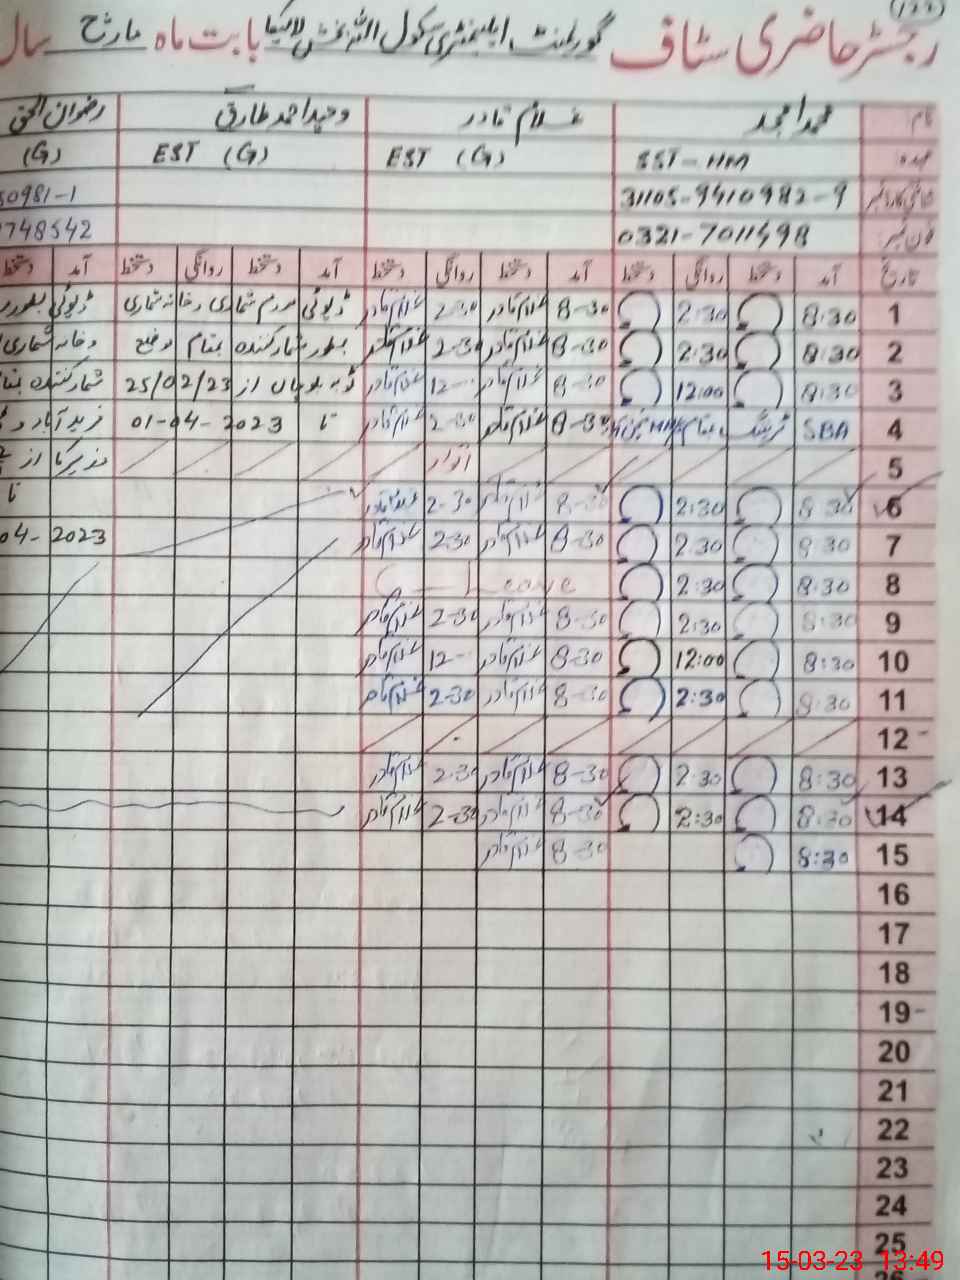 (122)
رجسٹر حاضری سٹاف گورنمنٹ ایلیمنٹری سکول اللہ بخش لالیکا بابت ماہ مارچ سال
نام محمد امجد غلام قادر وحید احمد طارق رضوان الحق
عہدہ SST-HM EST (G) EST (G) (G)
شناختی کارڈ نمبر 31105-9410982-9 50981-1
فون نمبر 0321-7011498 748542
تاریخ آمد دستخط روانگی دستخط آمد دستخط روانگی دستخط آمد دستخط روانگی دستخط آمد دستخط
1 8:30 2:30 8-30 غلام قادر 2-30 غلام قادر ڈیوٹی مردم شماری و خانہ شماری ڈیوٹی بطور
2 8:30 2:30 8-30 غلام قادر 2-30 غلام قادر بطور شمارکنندہ بمقام و خانہ شماری
3 8:30 12:00 8-30 غلام قادر 12- غلام قادر از 25/02/23 شمارکنندہ
4 SBA ٹریننگ بمقام 8-30 غلام قادر 2-30 غلام قادر تا 01-04-2023 فرید آباد
5 اتوار از
6 8:30 2:30 8-30 غلام قادر 2-30 غلام قادر تا
7 8:30 2:30 8-30 غلام قادر 2-30 غلام قادر 04-2023
8 8:30 2:30 C-Leave
9 8:30 2:30 8-30 غلام قادر 2-30 غلام قادر
10 8:30 12:00 8-30 غلام قادر 12- غلام قادر
11 8:30 2:30 8-30 غلام قادر 2-30 غلام قادر
12
13 8:30 2:30 8-30 غلام قادر 2-30 غلام قادر
14 8:30 2:30 8-30 غلام قادر 2-30 غلام قادر
15 8:30 8-30 غلام قادر
16
17
18
19
20
21
22
23
24
25
15-03-23 13:49